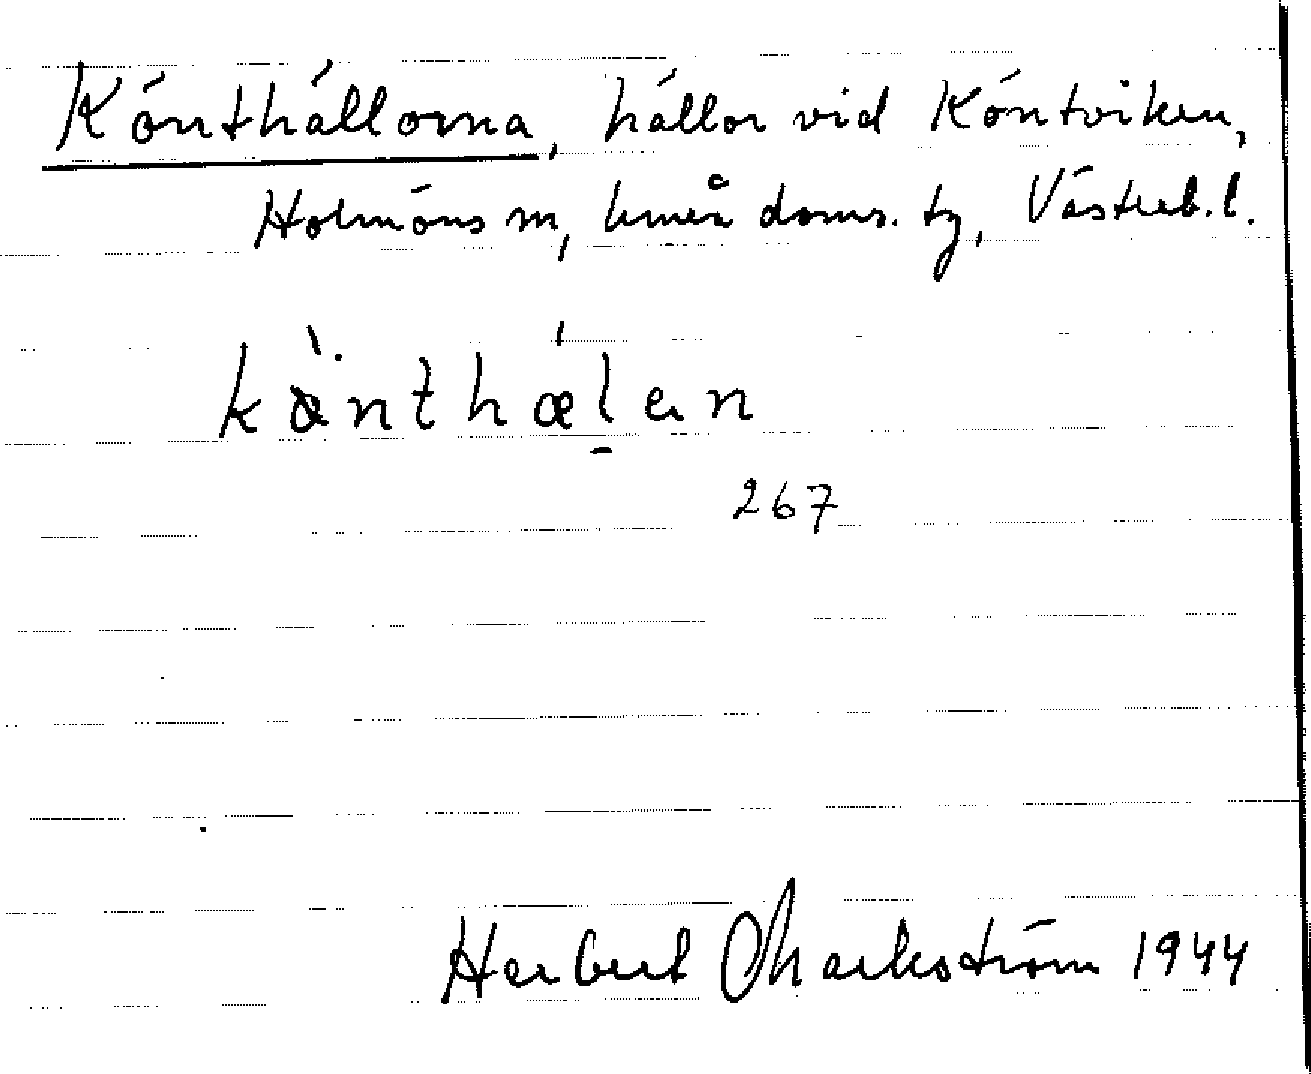 Könthällorna, hällor vid Köntviken,
Holmöns sn, Umeå doms. tg, Västerb. l.
267
Herbert Markström 1944